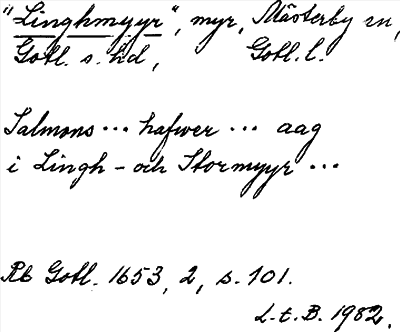 "Linghmyyr", myr, Mästerby sn,
Gotl. s. hd, Gotl. l.
Salmons ... hafwer ... aag
i Lingh - och Stormyyr ...
Rb Gotl. 1653, 2, s. 101.
L. t. B. 1982.